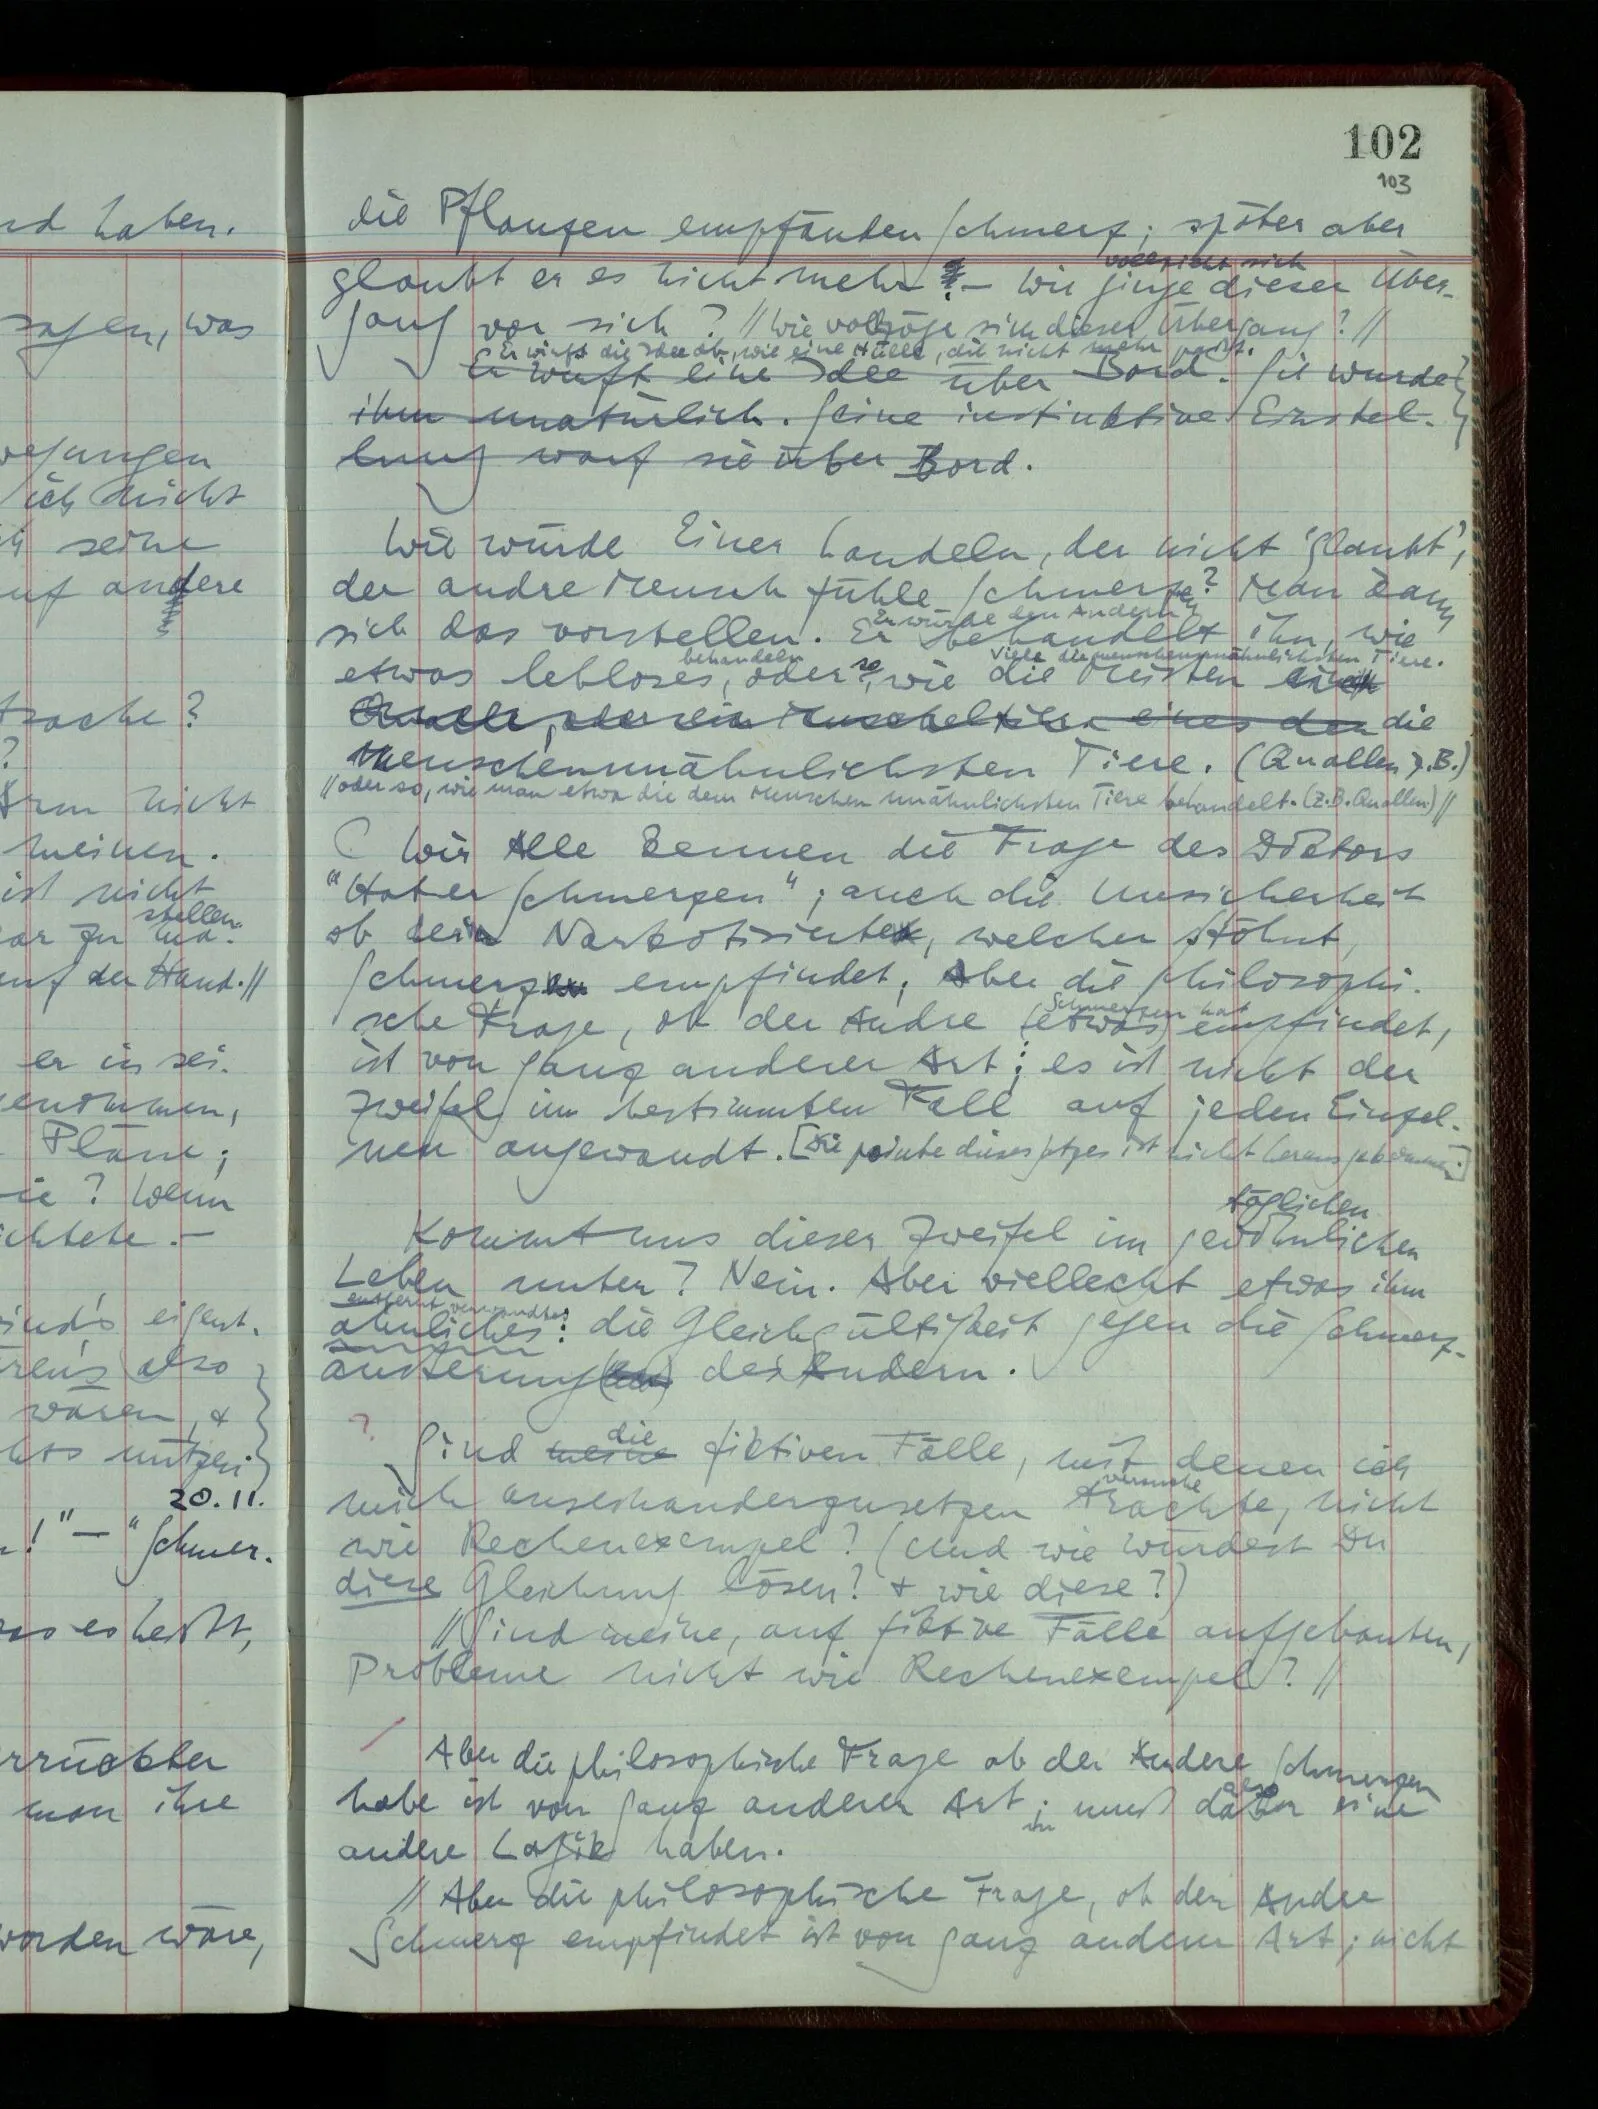 nd haben.
sagen, was
wegungen
ich nicht
seine
auf andere
trache?
?
Arm nicht
meinen.
ist nicht
stellen
gar zu ma-
auf der Hand.//
er in sei-
genommen,
Pläne;
sie? Wenn
ichtete. –
sind's eigent-
wären's also
wären, &
chts nützen
20.11.
n!" – "Schmer-
was es heißt,
errückter
man ihre
worden wäre,
102
103
die Pflanzen empfänden Schmerz; später aber
vollzieht sich
glaubt er es nicht mehr. – Wie ginge dieser Über-
gang vor sich? // Wie vollzöge sich dieser Übergang? //
Er wirft die Idee ab, wie eine Hülle, die nicht mehr passt.
Er wirft eine Idee über Bord. Sie wurde
ihm unnatürlich. Seine instinktive Einstel-
lung warf sie über Bord.
Wie würde Einer handeln, der nicht 'glaubt',
der andre Mensch fühle Schmerzen? Man kann
Er würde den Andern
sich das vorstellen. Er behandelt ihn, wie
behandeln viele die menschenunähnlichsten Tiere.
etwas lebloses, oder so, wie die Meisten
Qualle, oder ein Muscheltier eines der die
menschenunähnlichsten Tiere. (Quallen z.B.)
// oder so, wie man etwa die dem Menschen unähnlichsten Tiere behandelt. (Z.B. Quallen) //
Wir Alle kennen die Frage des Doktors
"Hat er Schmerzen"; auch die Unsicherheit
ob der Narkotisierte, welcher stöhnt,
Schmerzen empfindet; Aber die philosophi-
Schmerzen hat
sche Frage, ob der Andre (etwas) empfindet,
ist von ganz anderer Art; es ist nicht der
Zweifel im bestimmten Fall auf jeden Einzel-
nen angewandt. [Die pointe dieses Satzes ist nicht herausgekommen.]
täglichen
Kommt uns dieser Zweifel im gewöhnlichen
Leben unter? Nein. Aber vielleicht etwas ihm
entfernt verwandtes
ähnliches: die Gleichgültigkeit gegen die Schmerz-
äußerung(en) des Andern.
?
die
Sind meine fiktiven Fälle, mit denen ich
versuche
mich auseinanderzusetzen trachte, nicht
wie Rechenexempel? (Und wie würdest Du
diese Gleichung lösen? & wie diese?)
// Sind meine, auf fiktive Fälle aufgebauten,
Probleme nicht wie Rechenexempel? //
/
Aber die philosophische Frage ob der Andere Schmerzen
also
habe ist von ganz anderer Art; muß daher eine
andere Logik haben.
// Aber die philosophische Frage, ob der Andre
Schmerz empfindet ist von ganz anderer Art; nicht